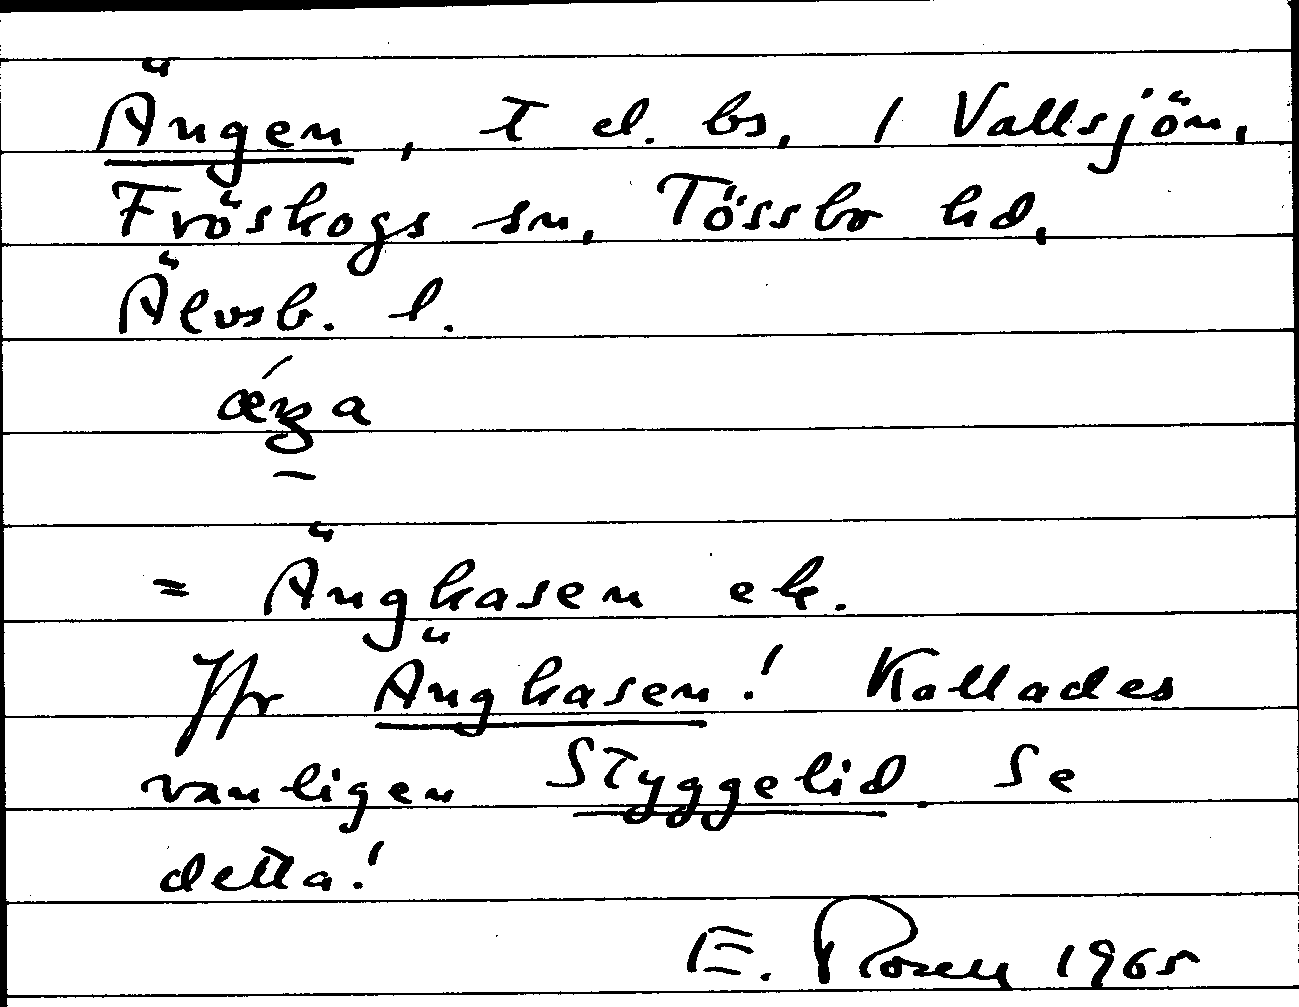 Ängen, t el. bs, i Vallsjön,
Fröskogs sn, Tössbo hd,
Älvsb. l.
= Ängkasen ek.
Jfr Ängkasen! Kallades
vanligen Styggelid. Se
detta!
E. Rosell 1965